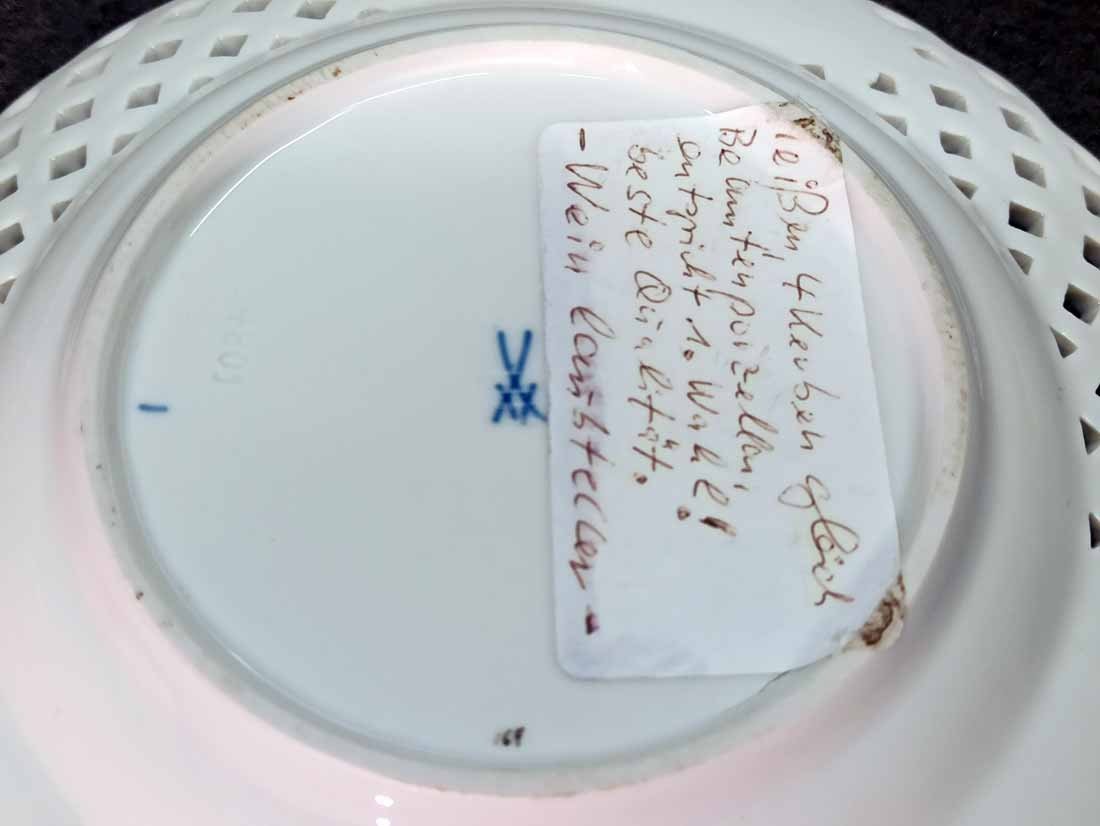 eißen, 4 Kerben gleich
Beamtenporzellan,
entspricht 1. Wahl!
beste Qualität.
- Weinlaubteller -
169